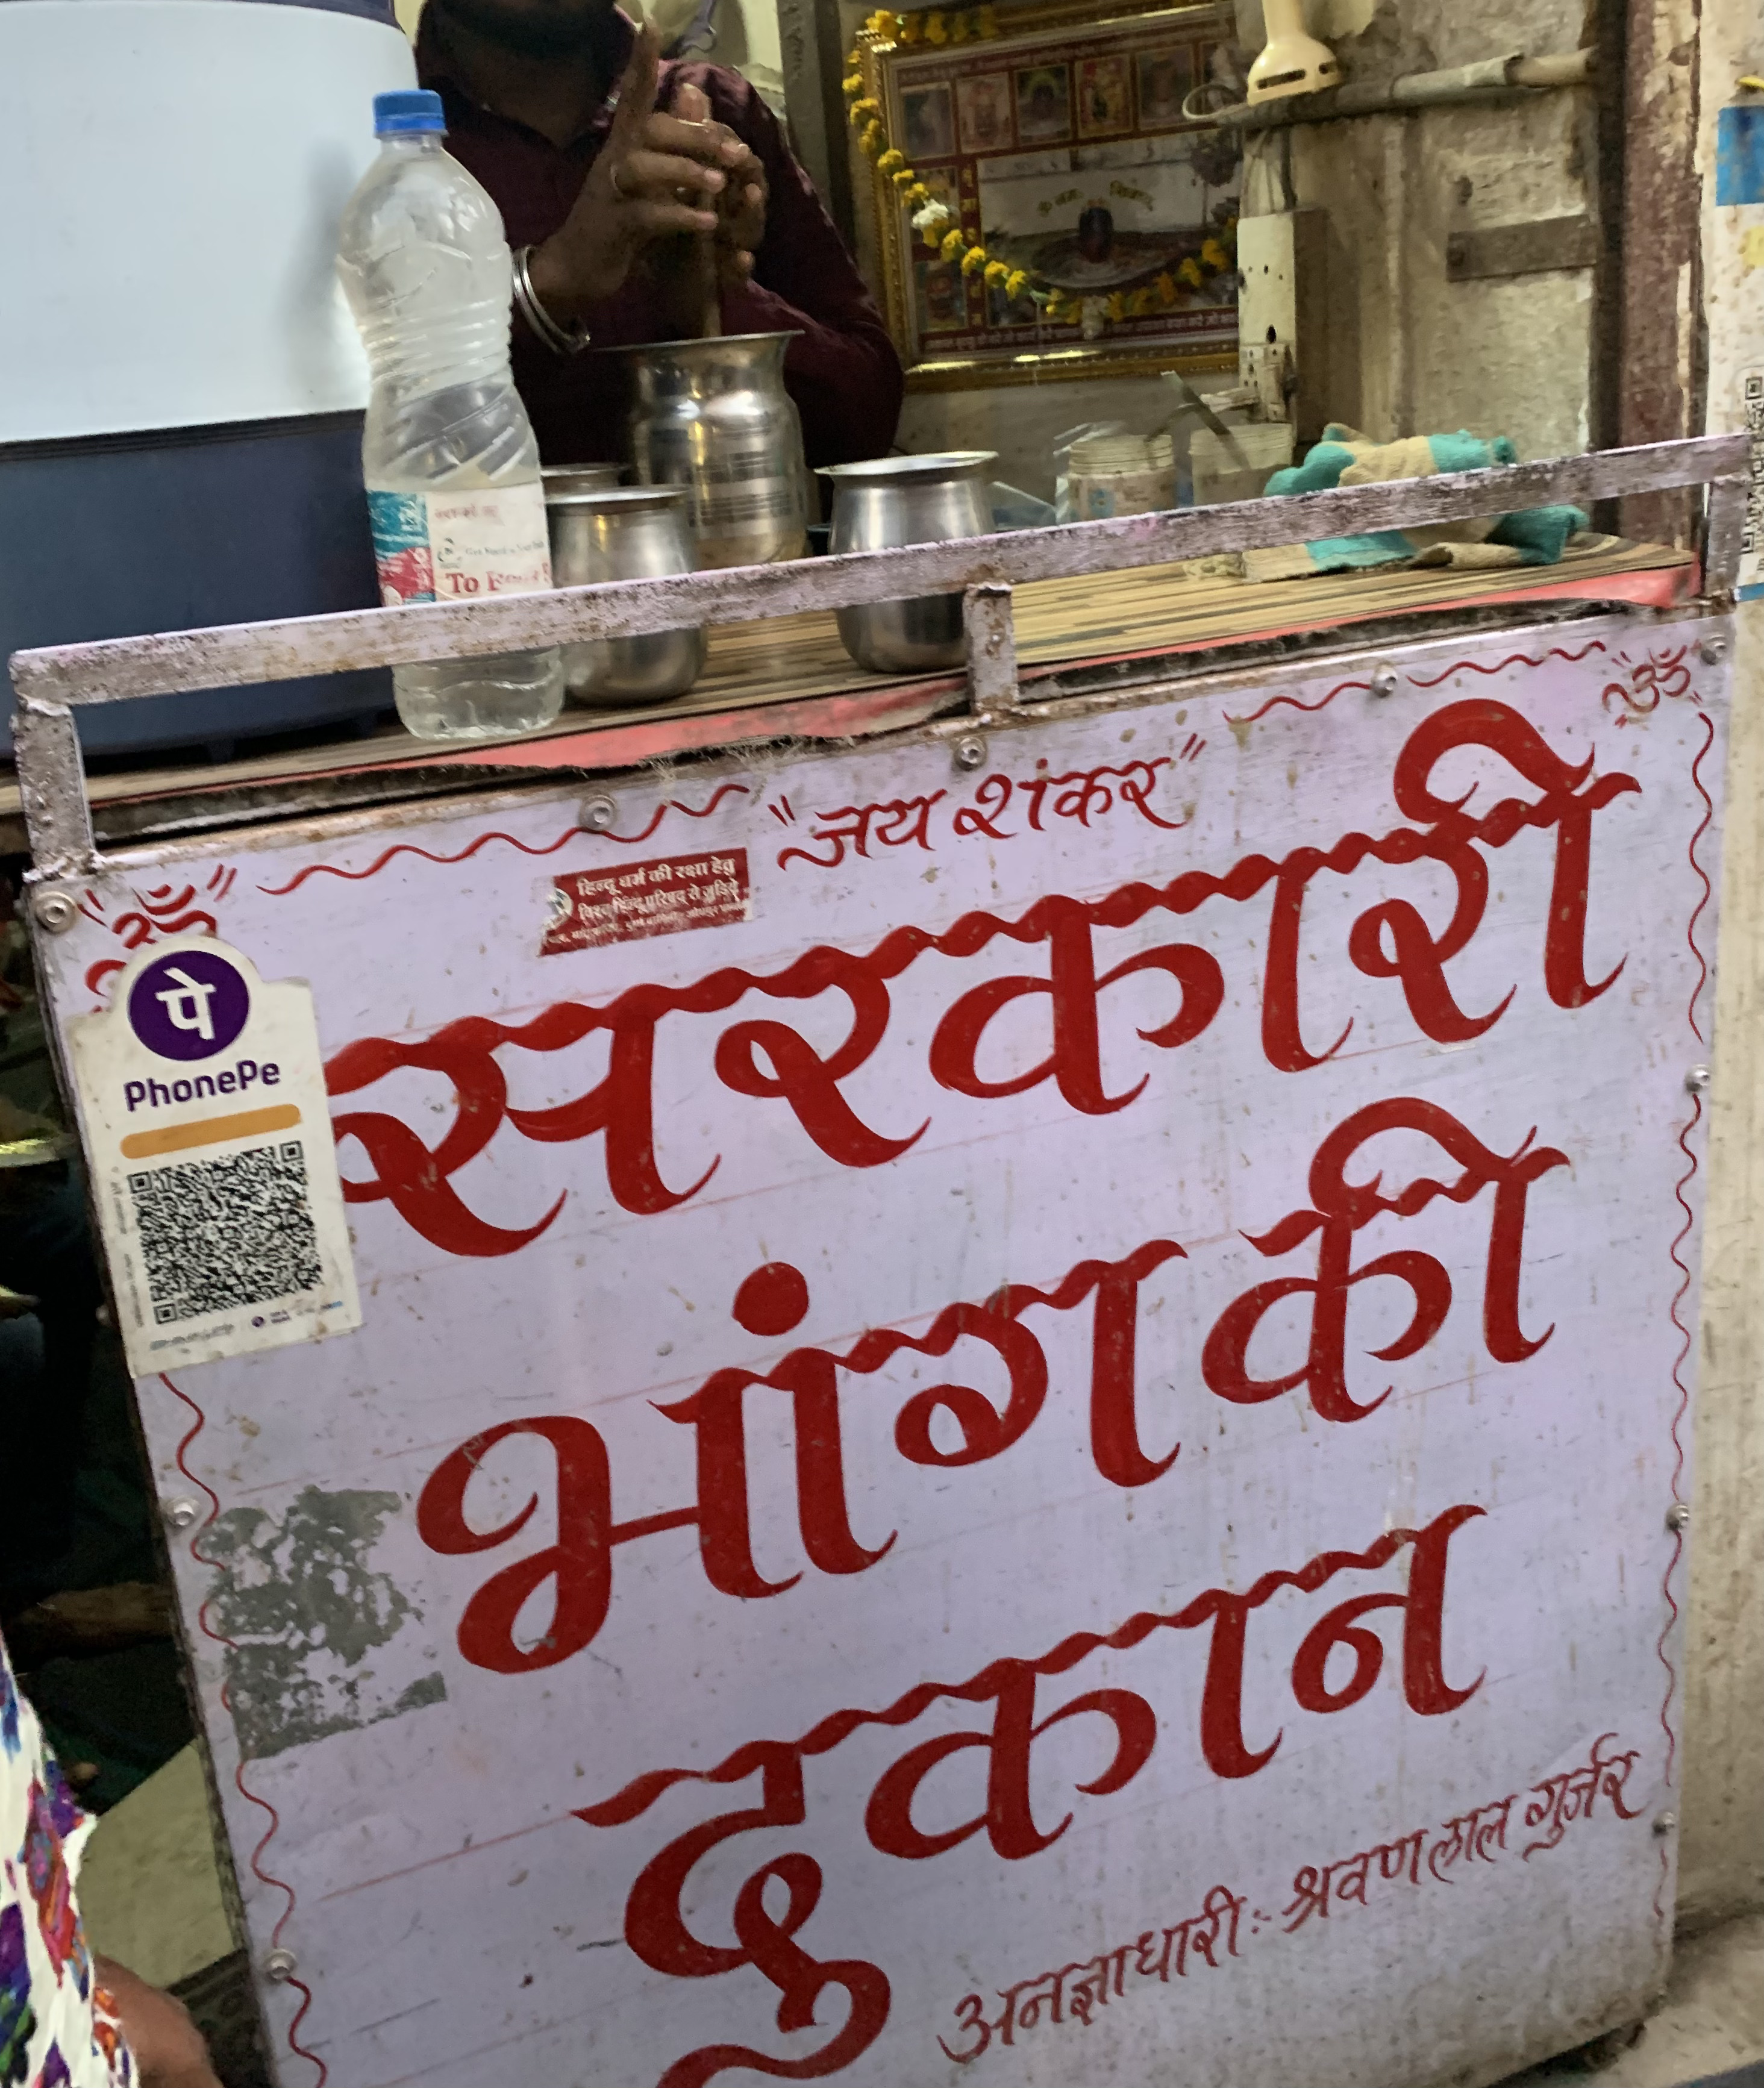 To
"ॐ"
"जय शंकर"
"ॐ"
हिन्दू धर्म की रक्षा हेतु
विश्व हिन्दू परिषद् से जुड़िये
पे
PhonePe
सरकारी
भांग की
दुकान
अनज्ञाधारी:- श्रवण लाल गुर्जर